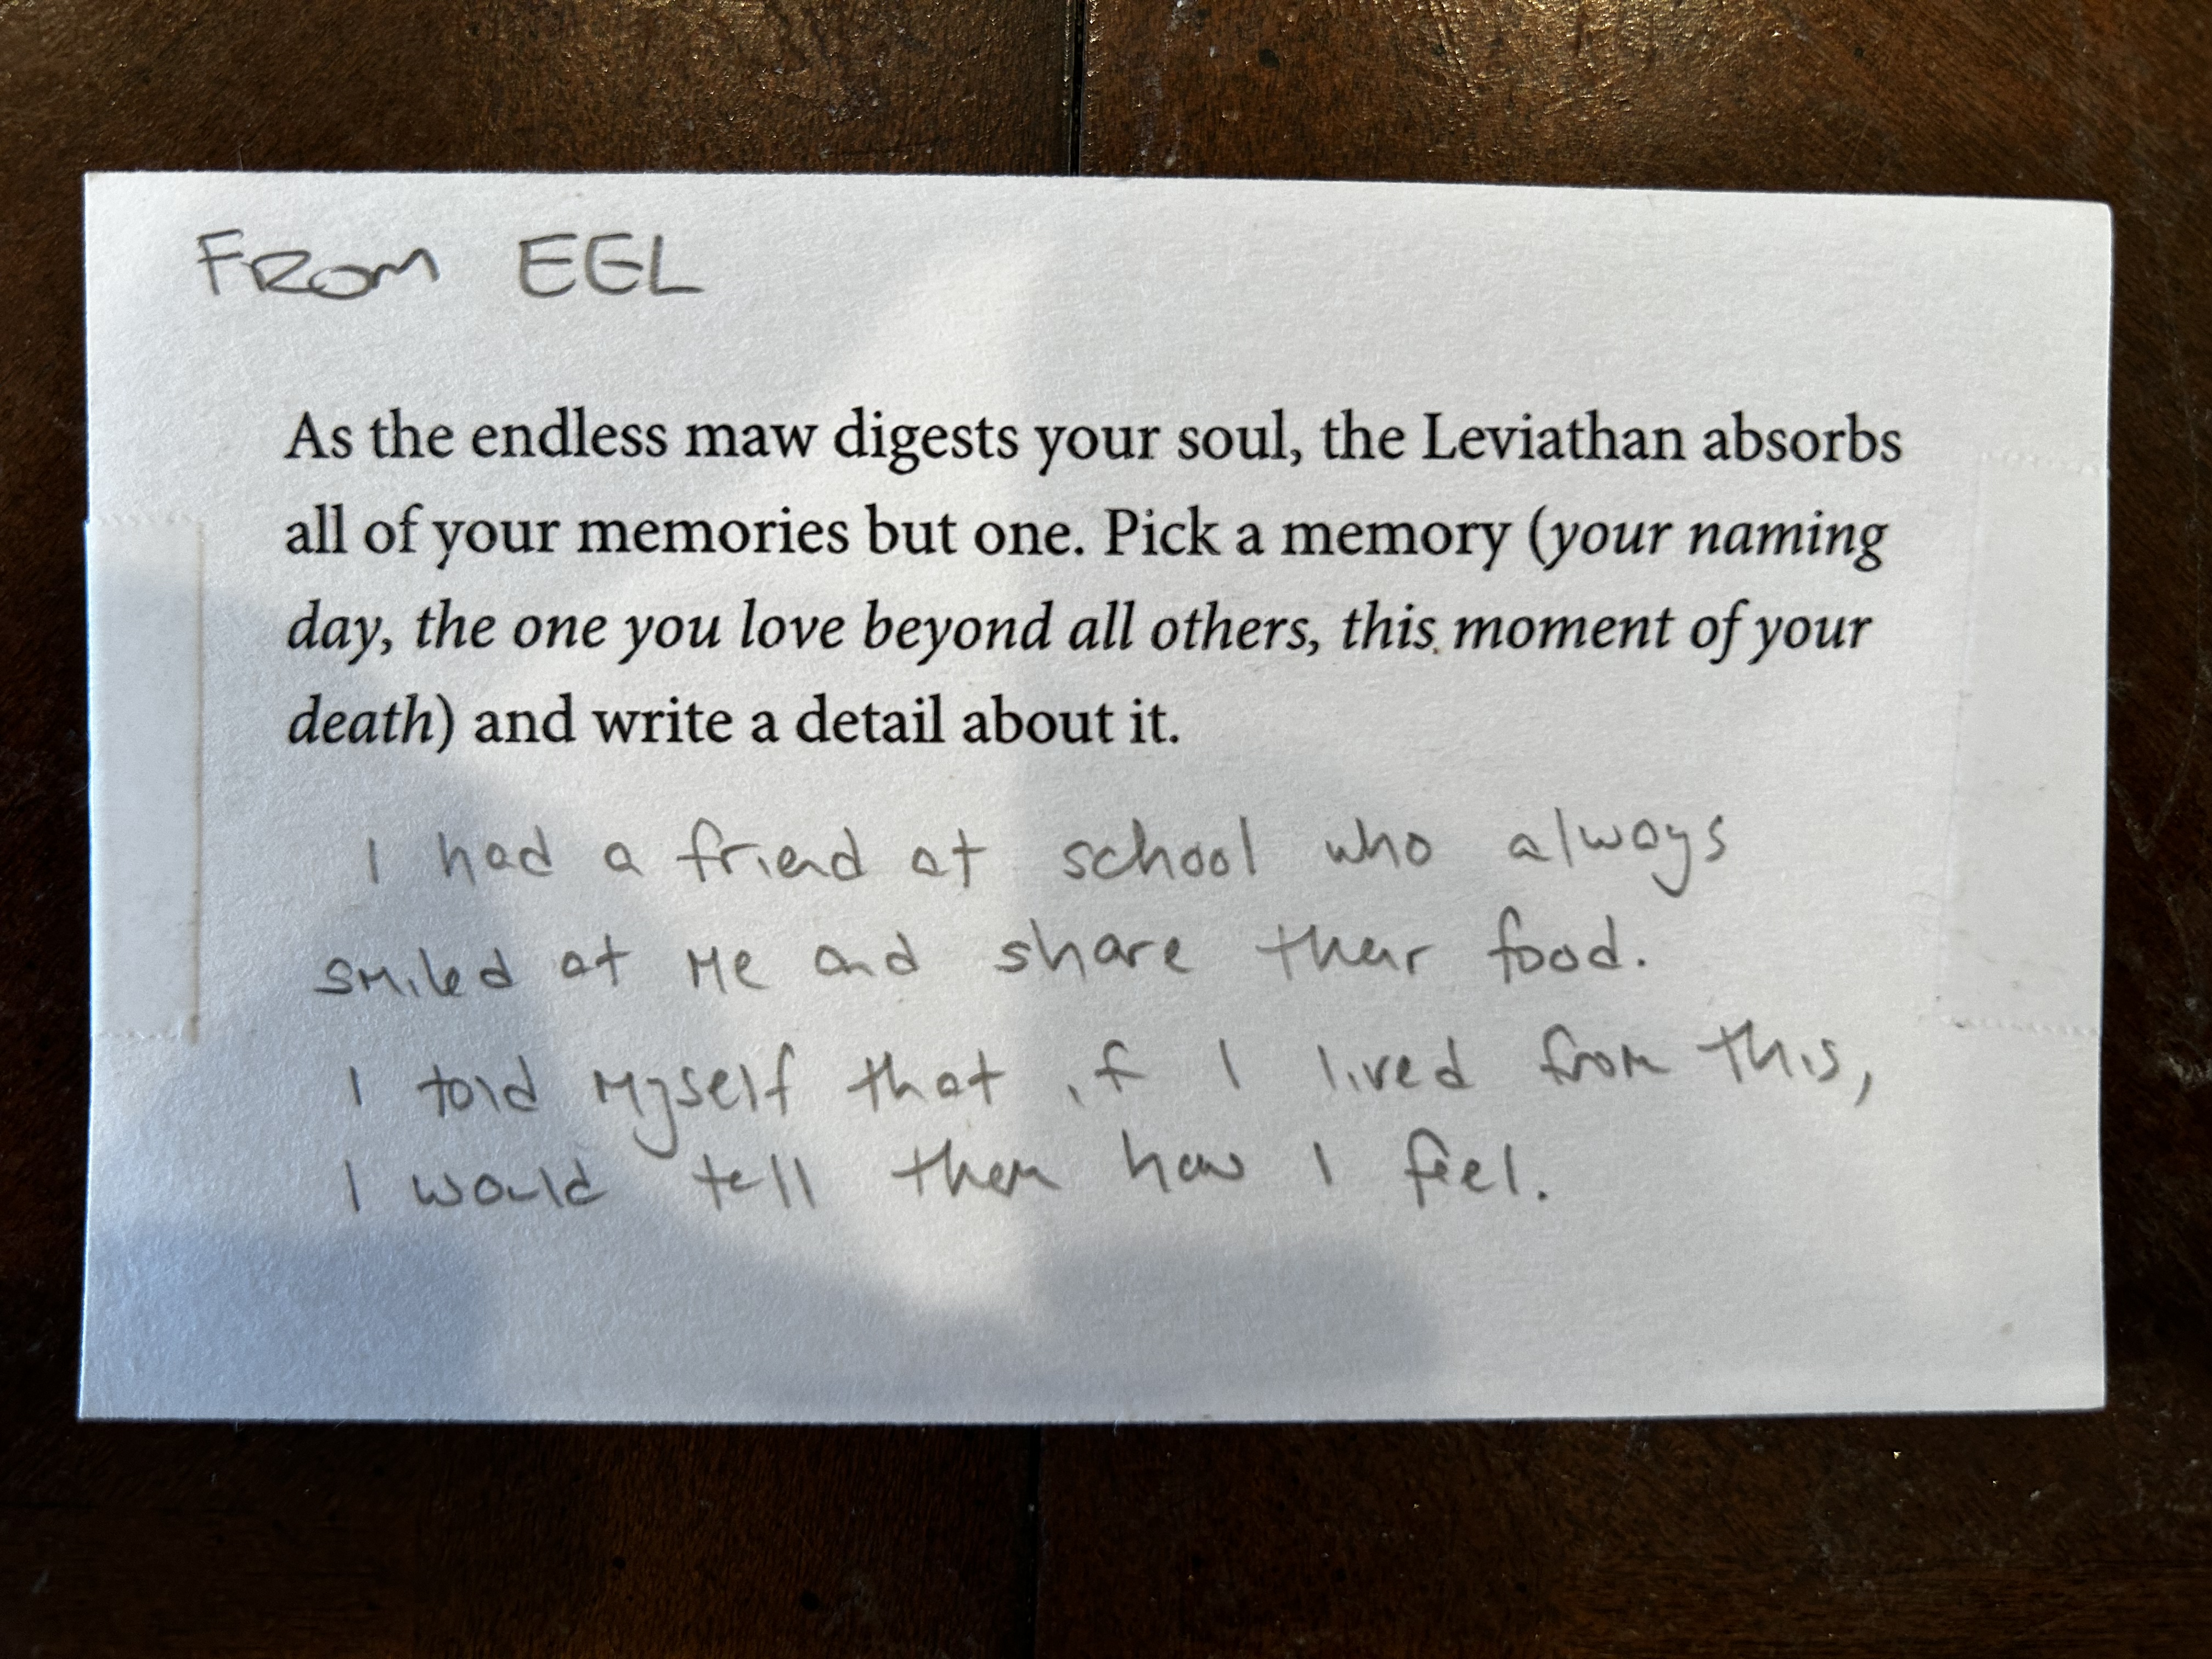 FROM EEL
As the endless maw digests your soul, the Leviathan absorbs
all of your memories but one. Pick a memory (your naming
day, the one you love beyond all others, this moment of your
death) and write a detail about it.
I had a friend at school who always
smiled at me and share their food.
I told myself that if I lived from this,
I would tell them how I feel.